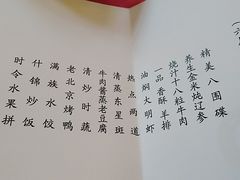 精美八围碟
养生金米炖辽参
烧汁十八粒牛肉
一品香酥羊排
油焖大明虾
热点两道
清蒸东星斑
牛肉酱蒸老豆腐
清炒时蔬
老北京烤鸭
满族水饺
什锦炒饭
时令水果拼